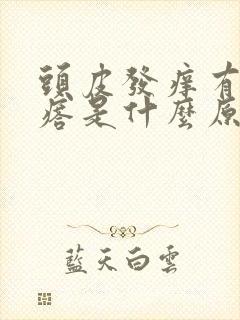 頭皮發癢有
痞是什麼原
藍天白雲